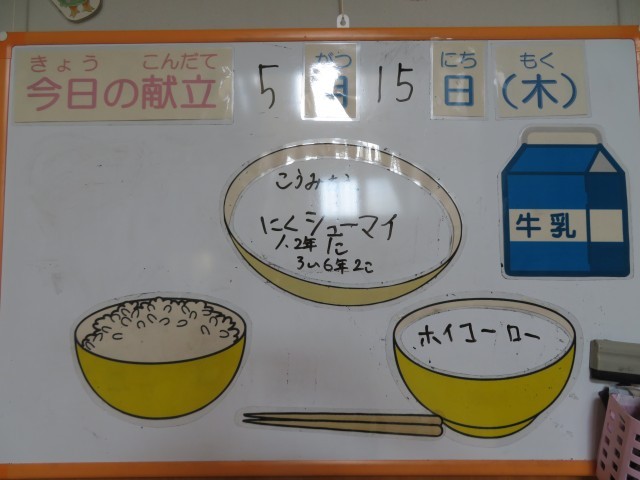 きょう こんだて がつ にち もく
今日の献立 5 月 15 日 (木)
こうみ
にくシューマイ
1、2年 1こ
3い6年2こ
牛乳
ホイコーロー